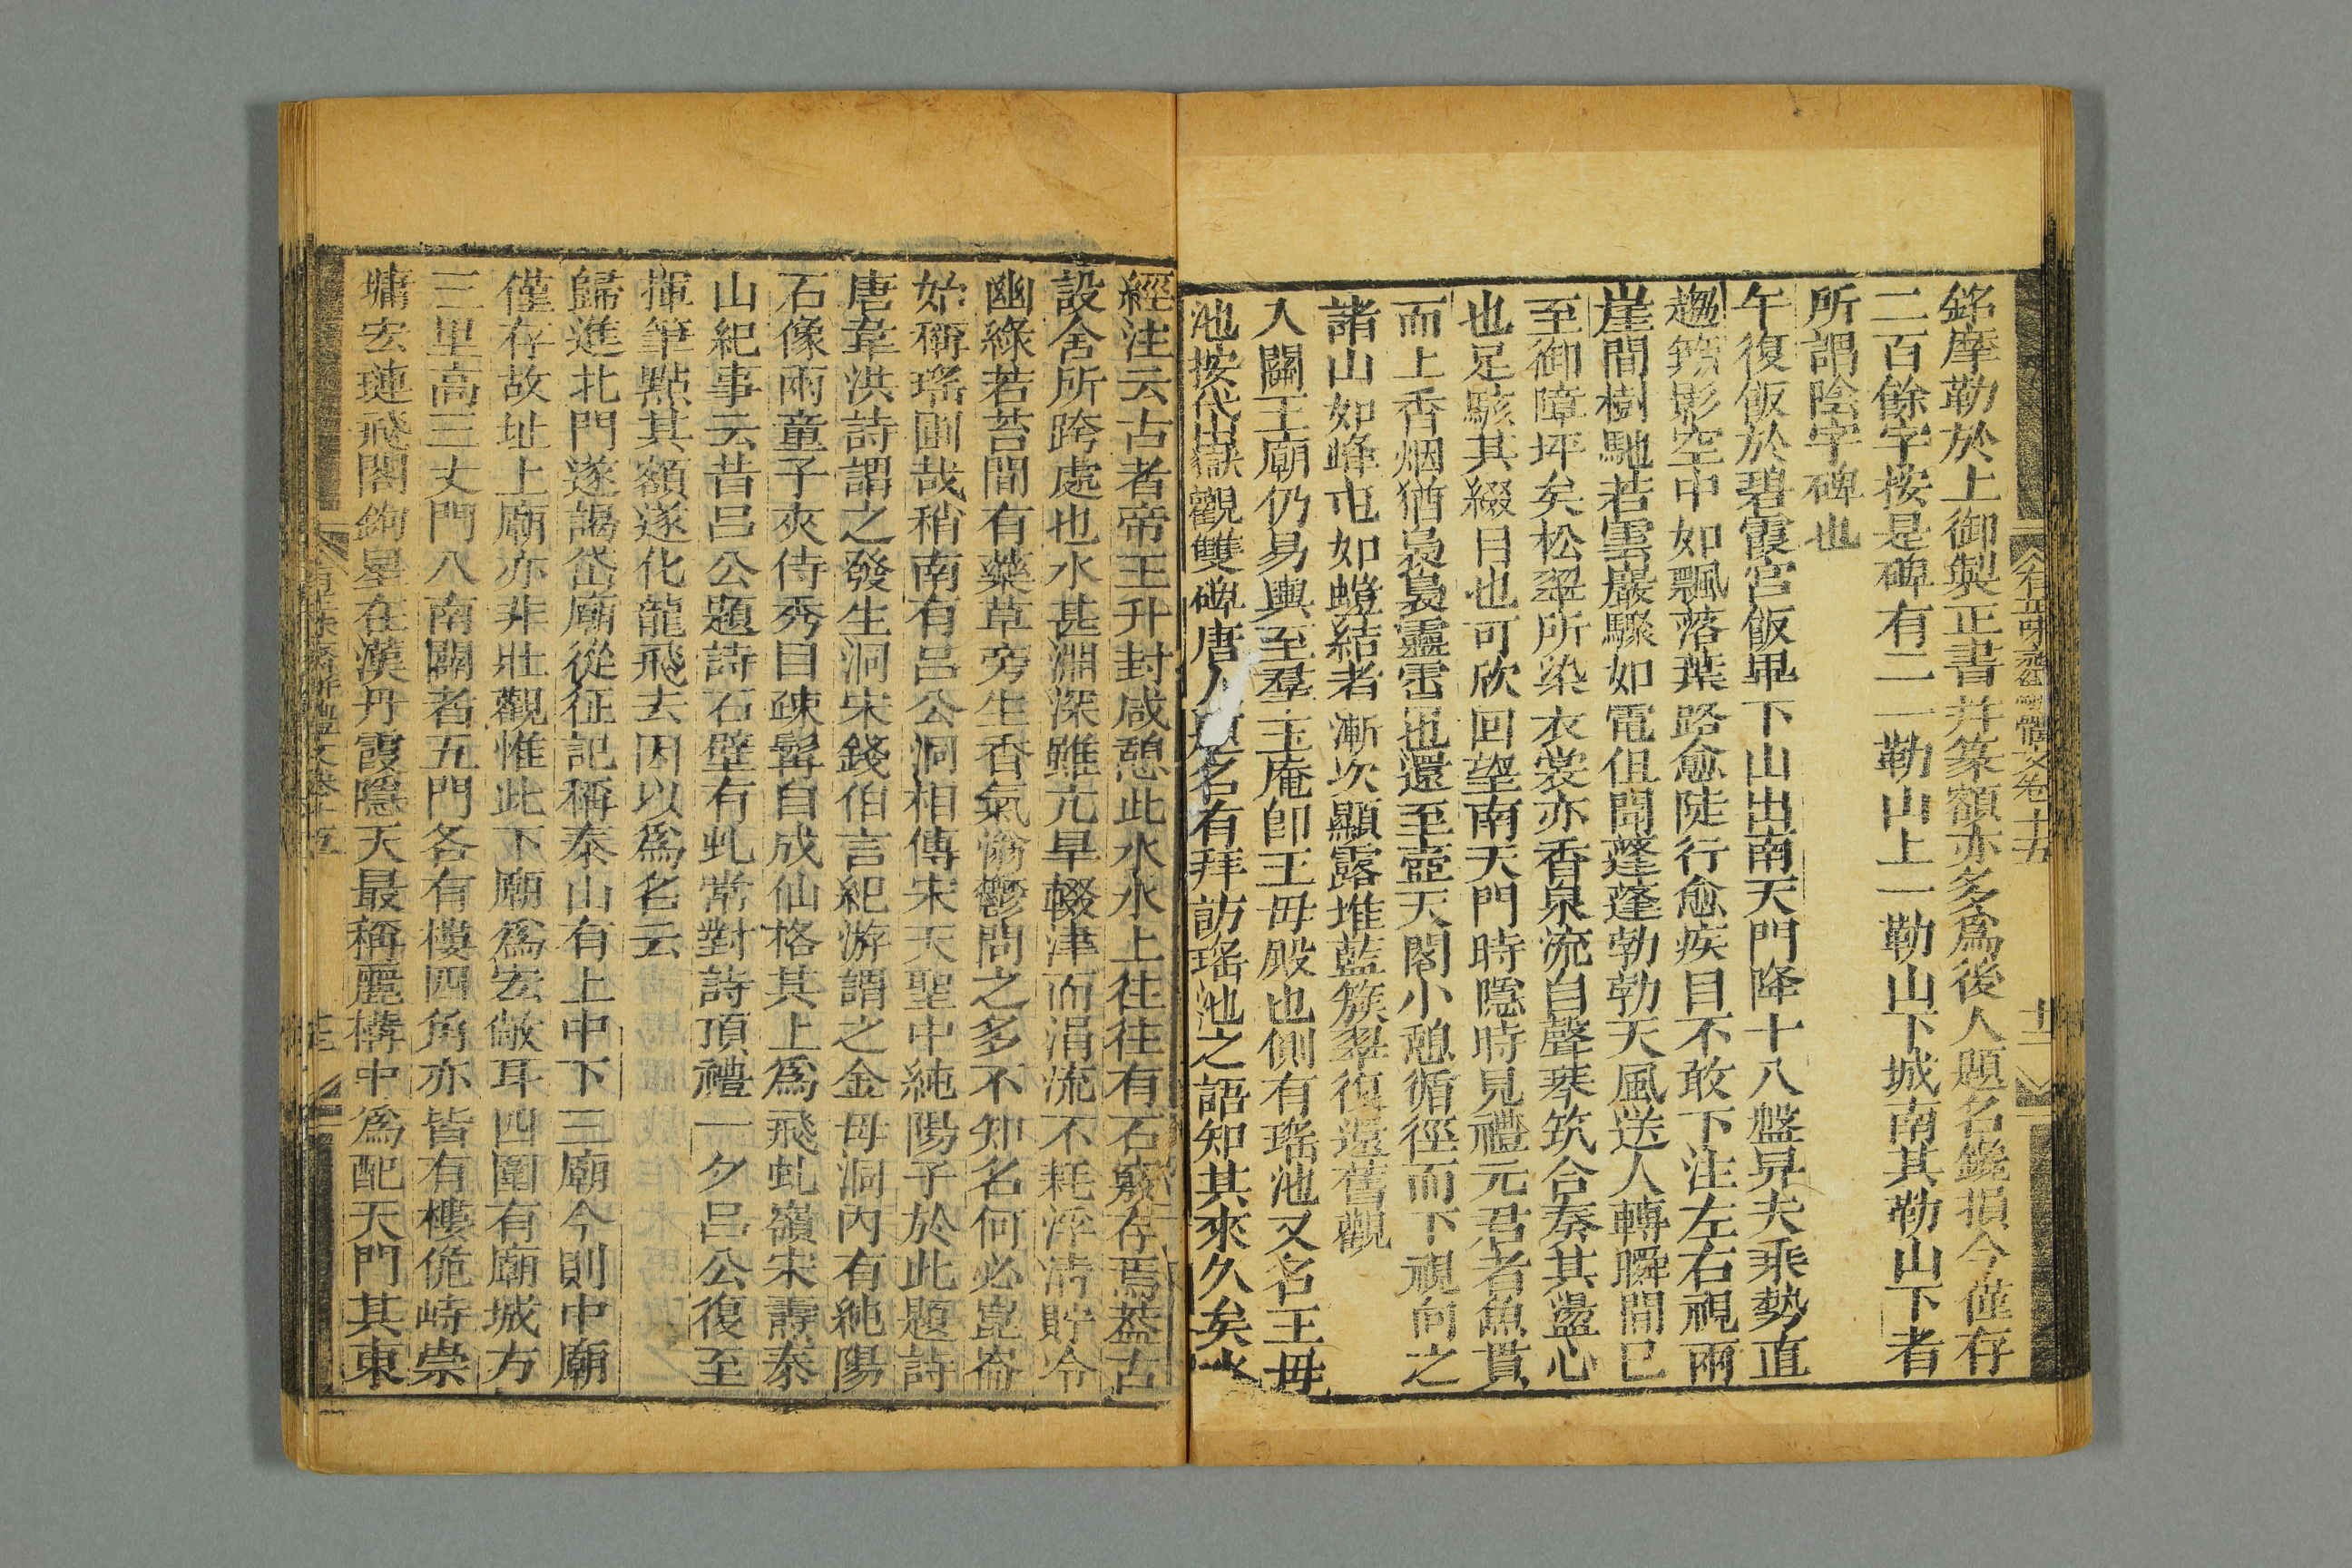 銘摩勒於上御製正書并篆額亦多爲後人題名鑱損今僅存
二百餘字按是碑有二一勒山上一勒山下城南其勒山下者
所謂陰字碑也
午復飯於碧霞宮飯畢下山出南天門降十八盤舁夫乘勢直
趨籟影空中如飄落葉路愈陡行愈疾目不敢下注左右視兩
崖間樹馳若雲巖驟如電但聞蓬蓬勃勃天風送人轉瞬間已
至御障坪矣松翠所染衣裳亦香泉流自聲琴筑合奏其盪心
也足駭其綴目也可欣回望南天門時隱時見禮元君者魚貫
而上香烟猶裊裊靈雲也還至壺天閣小憩循徑而下視向之
諸山如峰屯如螘結者漸次顯露堆藍簇翠復還舊觀
入關王廟仍易輿至羣玉庵卽王母殿也側有瑤池又名王母
池按岱嶽觀雙碑唐人題名有拜訪瑤池之語知其來久矣水
經注云古者帝王升封咸憩此水水上往往有石竅存焉蓋古
設舍所跨處也水甚淵深雖亢旱輟津而涓流不耗渟淸貯冷
幽綠若苔間有藥草旁生香氣滃鬱問之多不知名何必崑崙
始稱瑤圃哉稍南有呂公洞相傳宋天聖中純陽子於此題詩
唐韋洪詩謂之發生洞宋錢伯言紀游謂之金母洞內有純陽
石像兩童子夾侍秀目疎髯自成仙格其上爲飛虬嶺宋壽泰
山紀事云昔呂公題詩石壁有虬常對詩頂禮一夕呂公復至
揮筆點其額遂化龍飛去因以爲名云
歸進北門遂謁岱廟從征記稱泰山有上中下三廟今則中廟
僅存故址上廟亦非壯觀惟此下廟爲宏敞耳四圍有廟城方
三里高三丈門八南闢者五門各有樓四角亦皆有樓佹峙崇
墉宏璉飛閣鉤星在漢丹霞隱天最稱麗構中爲配天門其東